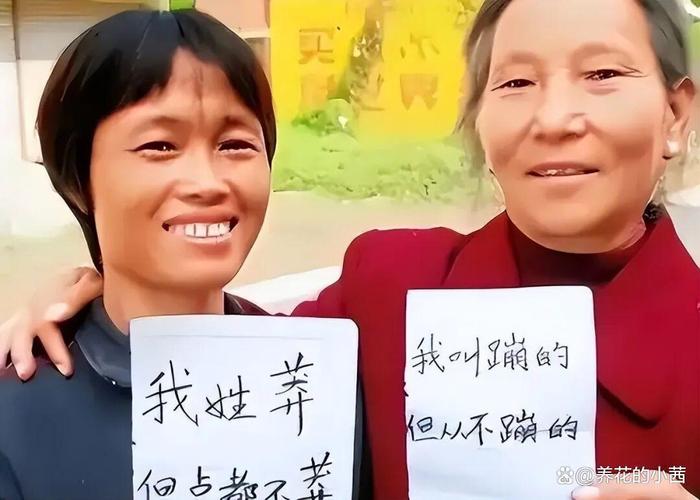 我姓莽
但占都不莽
我叫蹦的
但从不蹦的
养花的小茜